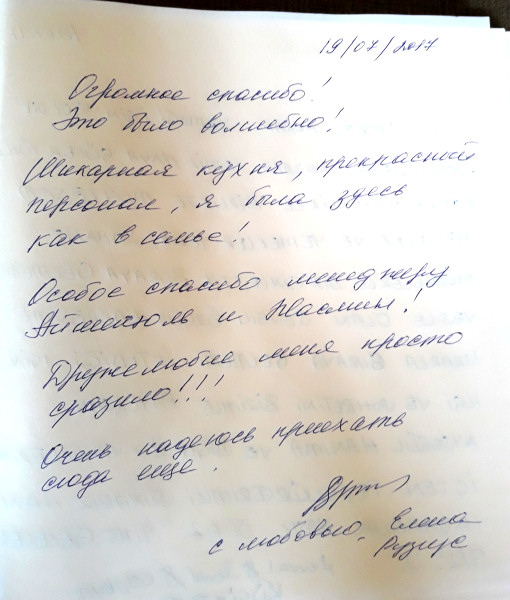 19/07/2017
Огромное спасибо!
Это было волшебно!
Шикарная кухня, прекрасный
персонал, я была здесь
как в семье!
Особое спасибо менеджеру
и Жасмин!
Дружелюбие меня просто
сразило!!!
Очень надеюсь приехать
сюда еще.
с любовью, Елена